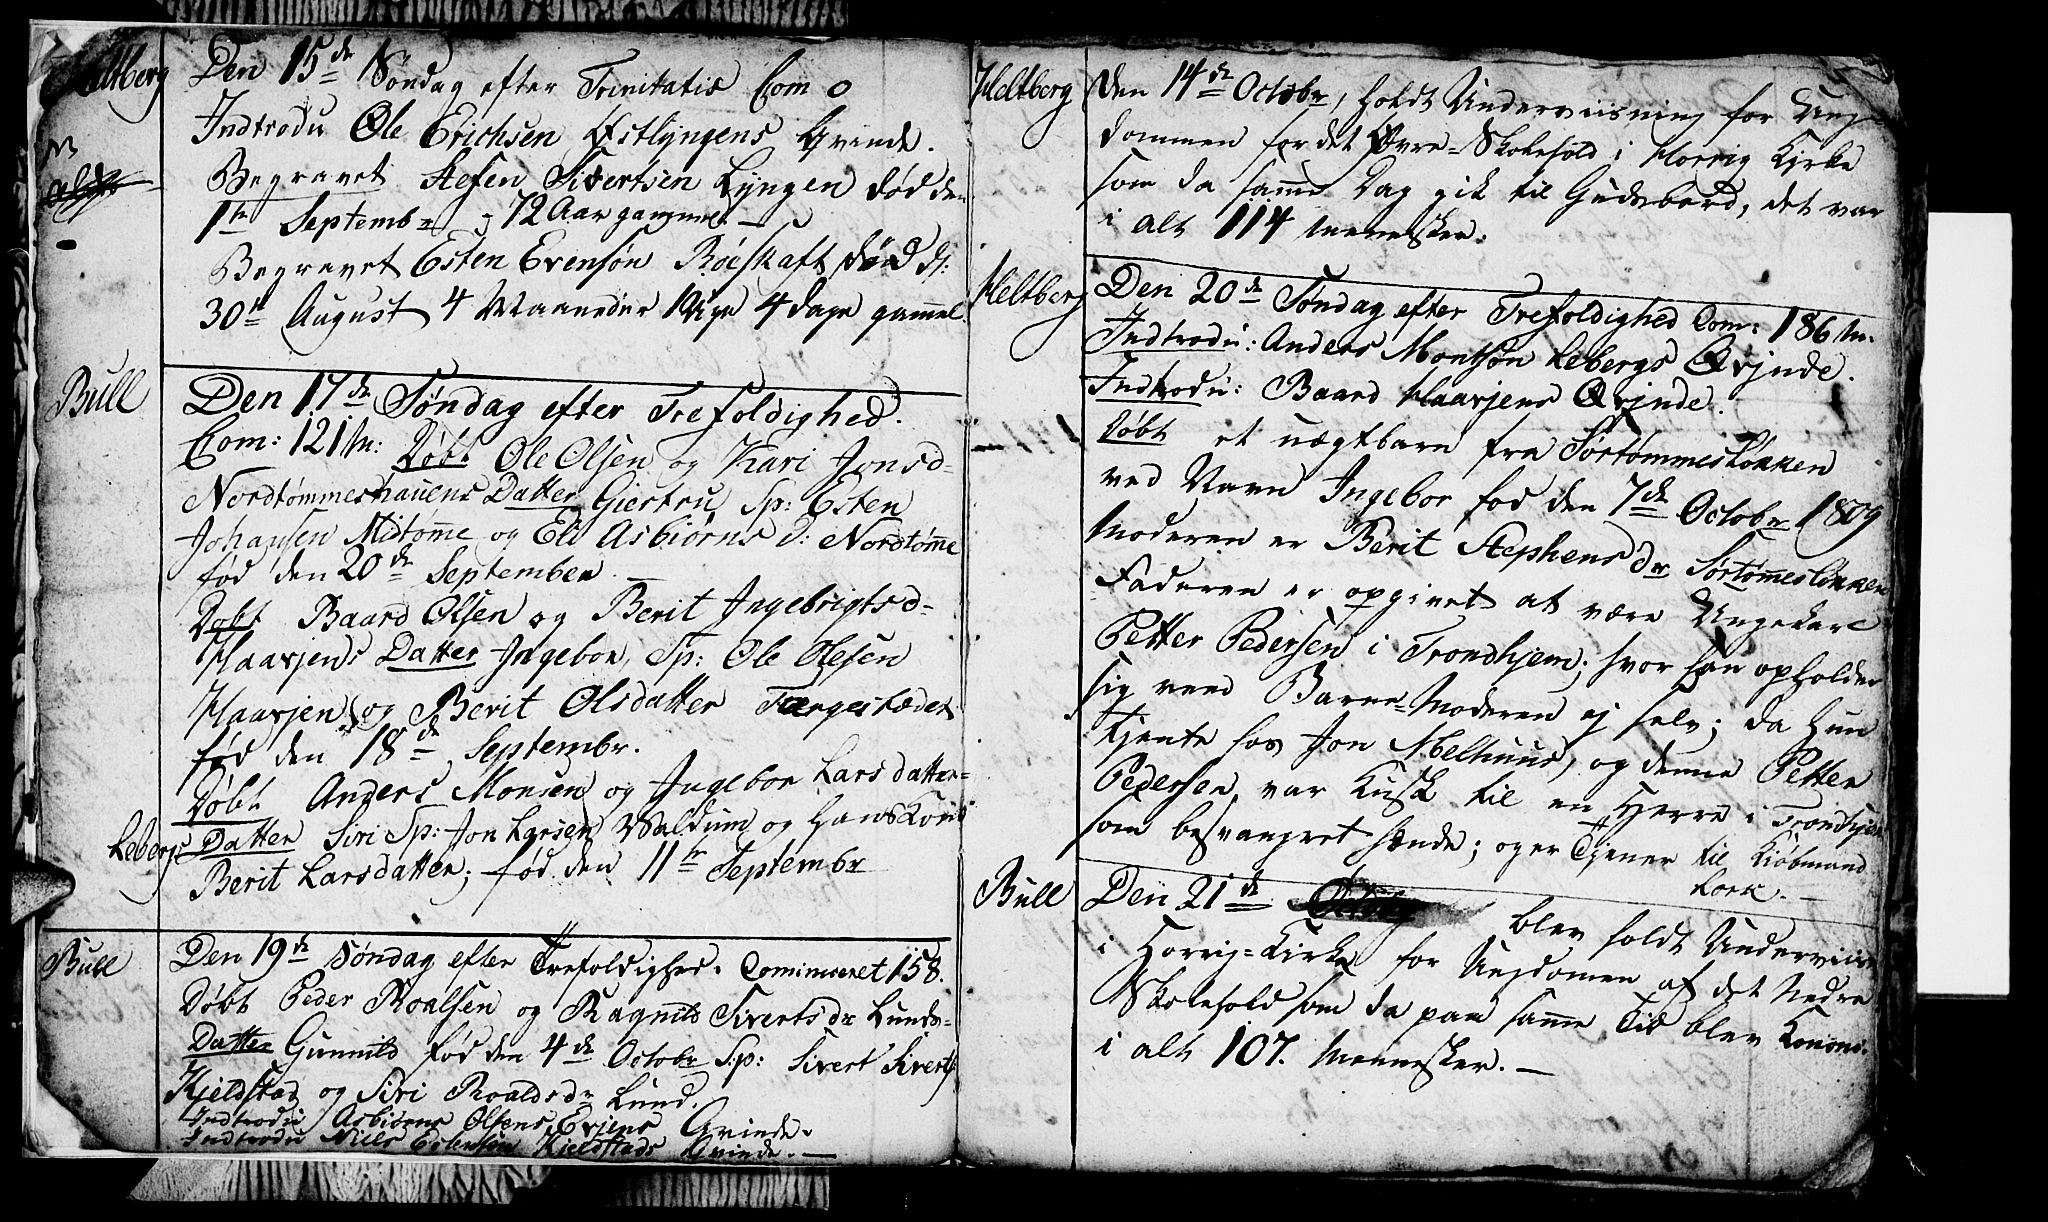 Heltberg
Den 15de Søndag efter Trinitatis Com 0
Indtrodu Ole Erichsen Østlyngens Qvinde.
Begravet Stefen Sivertsen Lyngen død den
1te Septembr 72 Aar gammel
Begravet Esten Evensøn Røeskaft død d:
30te August 4 Maaneder 1 Uge 4 dage gammel.
Bull
Den 17de Søndag efter Trefoldighed.
Com: 121 M: Døbt Ole Olsen og Kari Jonsd-
Nordtømmeshauens Datter Giertru, Sp: Esten
Johansen Midtømme og Eli Asbiørns D: Nordtømme
fød den 20de September
Døbt Baard Olsen og Berit Ingebrigtsd-
Haarjens Datter Ingebor, Sp: Ole Olesen
Haarjen og Berit Olsdatter Færgestædet
fød den 18de Septembr.
Døbt Anders Monsen og Ingebor Larsdatter-
Lebergs Datter Siri Sp: Jon Larsen Waldum og Hans Kone
Berit Larsdatter; fød den 11te Septembr
Bull
Den 19de Søndag efter Trefoldighed. Cominuceret 158.
Døbt Peder Roalsen og Ragnild Siverts dr Lunds-
Datter Gunnild fød den 4de Octobr Sp: Sivert Siverts:
Kjeldstad og Siri Roaldsdr Lund.
Indtrodu Asbiørns Olsens Evjens Qvinde.
Indtrodu Niels Estensen Kjeldstads Qvinde. —
Heltberg
Den 14de Octobr, holdt Underviisning for Ung-
dommen for det Øvre-Skolehold i Horrig Kirke
som da samme Dag gik til Gudsbord, det var
i alt 114 Mennesker.
Heltberg
Den 20de Søndag efter Trefoldighed Com: 186 M.
Indtrodu: Anders Montsøn Lebergs Qvjnde.
Indtrodu: Baard Haarjens Qvjnde.
Døbt et uægtbarn fra Sørtømmesløkken
ved Navn Ingebor fød den 7de Octobr 1809
Moderen er Berit Stephens dr Sørtømmesløkken
Faderen er opgivet at være Ungekarl
Petter Pedersen i Trondhjem; hvor han opholder
sig veed Barne-Moderen ej selv; da hun
tjente hos Jon Melhuus, og denne Petter
Pedersen var Kusk til en Herre i Trondhjem
som besvangret hænde; og er Tjener til Kiøbmand
Lork. —
Bull
Den 21de blev holdt Underviisn
i Horrig-Kirke for Ungdomen af det Nedre
Skolehold som da paa samme Tid blev Konomi-
i alt 107. Mennesker. —